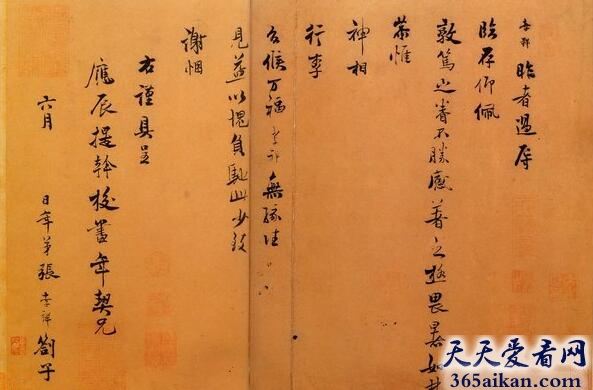 孝祥 昨者過辱
臨存仰佩
敦篤之眷不勝感著之極畏暑如
恭惟
神相
行李
台候万福孝祥無緣往
見益以愧負馳此少致
謝悃
右謹具呈
應辰提幹校書年契兄
六月 日年弟張孝祥劄子
天天爱看网
365aikan.com